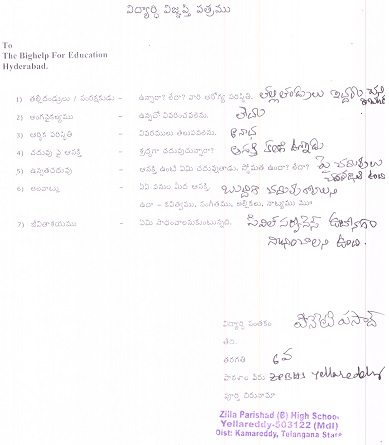 విద్యార్థి విజ్ఞప్తి పత్రము
To
The Bighelp For Education
Hyderabad.
1) తల్లిదండ్రులు / సంరక్షకుడు - ఉన్నారా? లేదా? వారి ఆరోగ్య పరిస్థితి. తల్లి తండ్రులు ఇద్దరు
2) అంగవైకల్యము - ఉన్నచో వివరించవలెను. లేదు
3) ఆర్థిక పరిస్థితి - వివరములు తెలుపవలెను.
4) చదువు పై ఆసక్తి - శ్రద్ధగా చదువుచున్నారా? ఆసక్తి కలిగి ఉన్నాడు
5) ఉన్నతచదువు - ఆసక్తి ఉంటే ఏమి చదువుతాడు. స్తోమత ఉందా? లేదా? పై చదువులు
ఉంది
6) అలవాట్లు - ఏ ఏ పనుల మీద ఆసక్తి.
ఉదా - కవిత్వము, సంగీతము, అల్లికలు, నాట్యము మొ
7) జీవితాశయము - ఏమి సాధించాలనుకుంటున్నది. సివిల్ సర్వీసెస్
ఉంది.
విద్యార్థి సంతకం
తేది.
తరగతి 6వ
పాఠశాల పేరు ZPBHS Yellareddy
పూర్తి చిరునామా
Zilla Parishad (B) High School
Yellareddy-503122 (Mdl)
Dist: Kamareddy, Telangana State